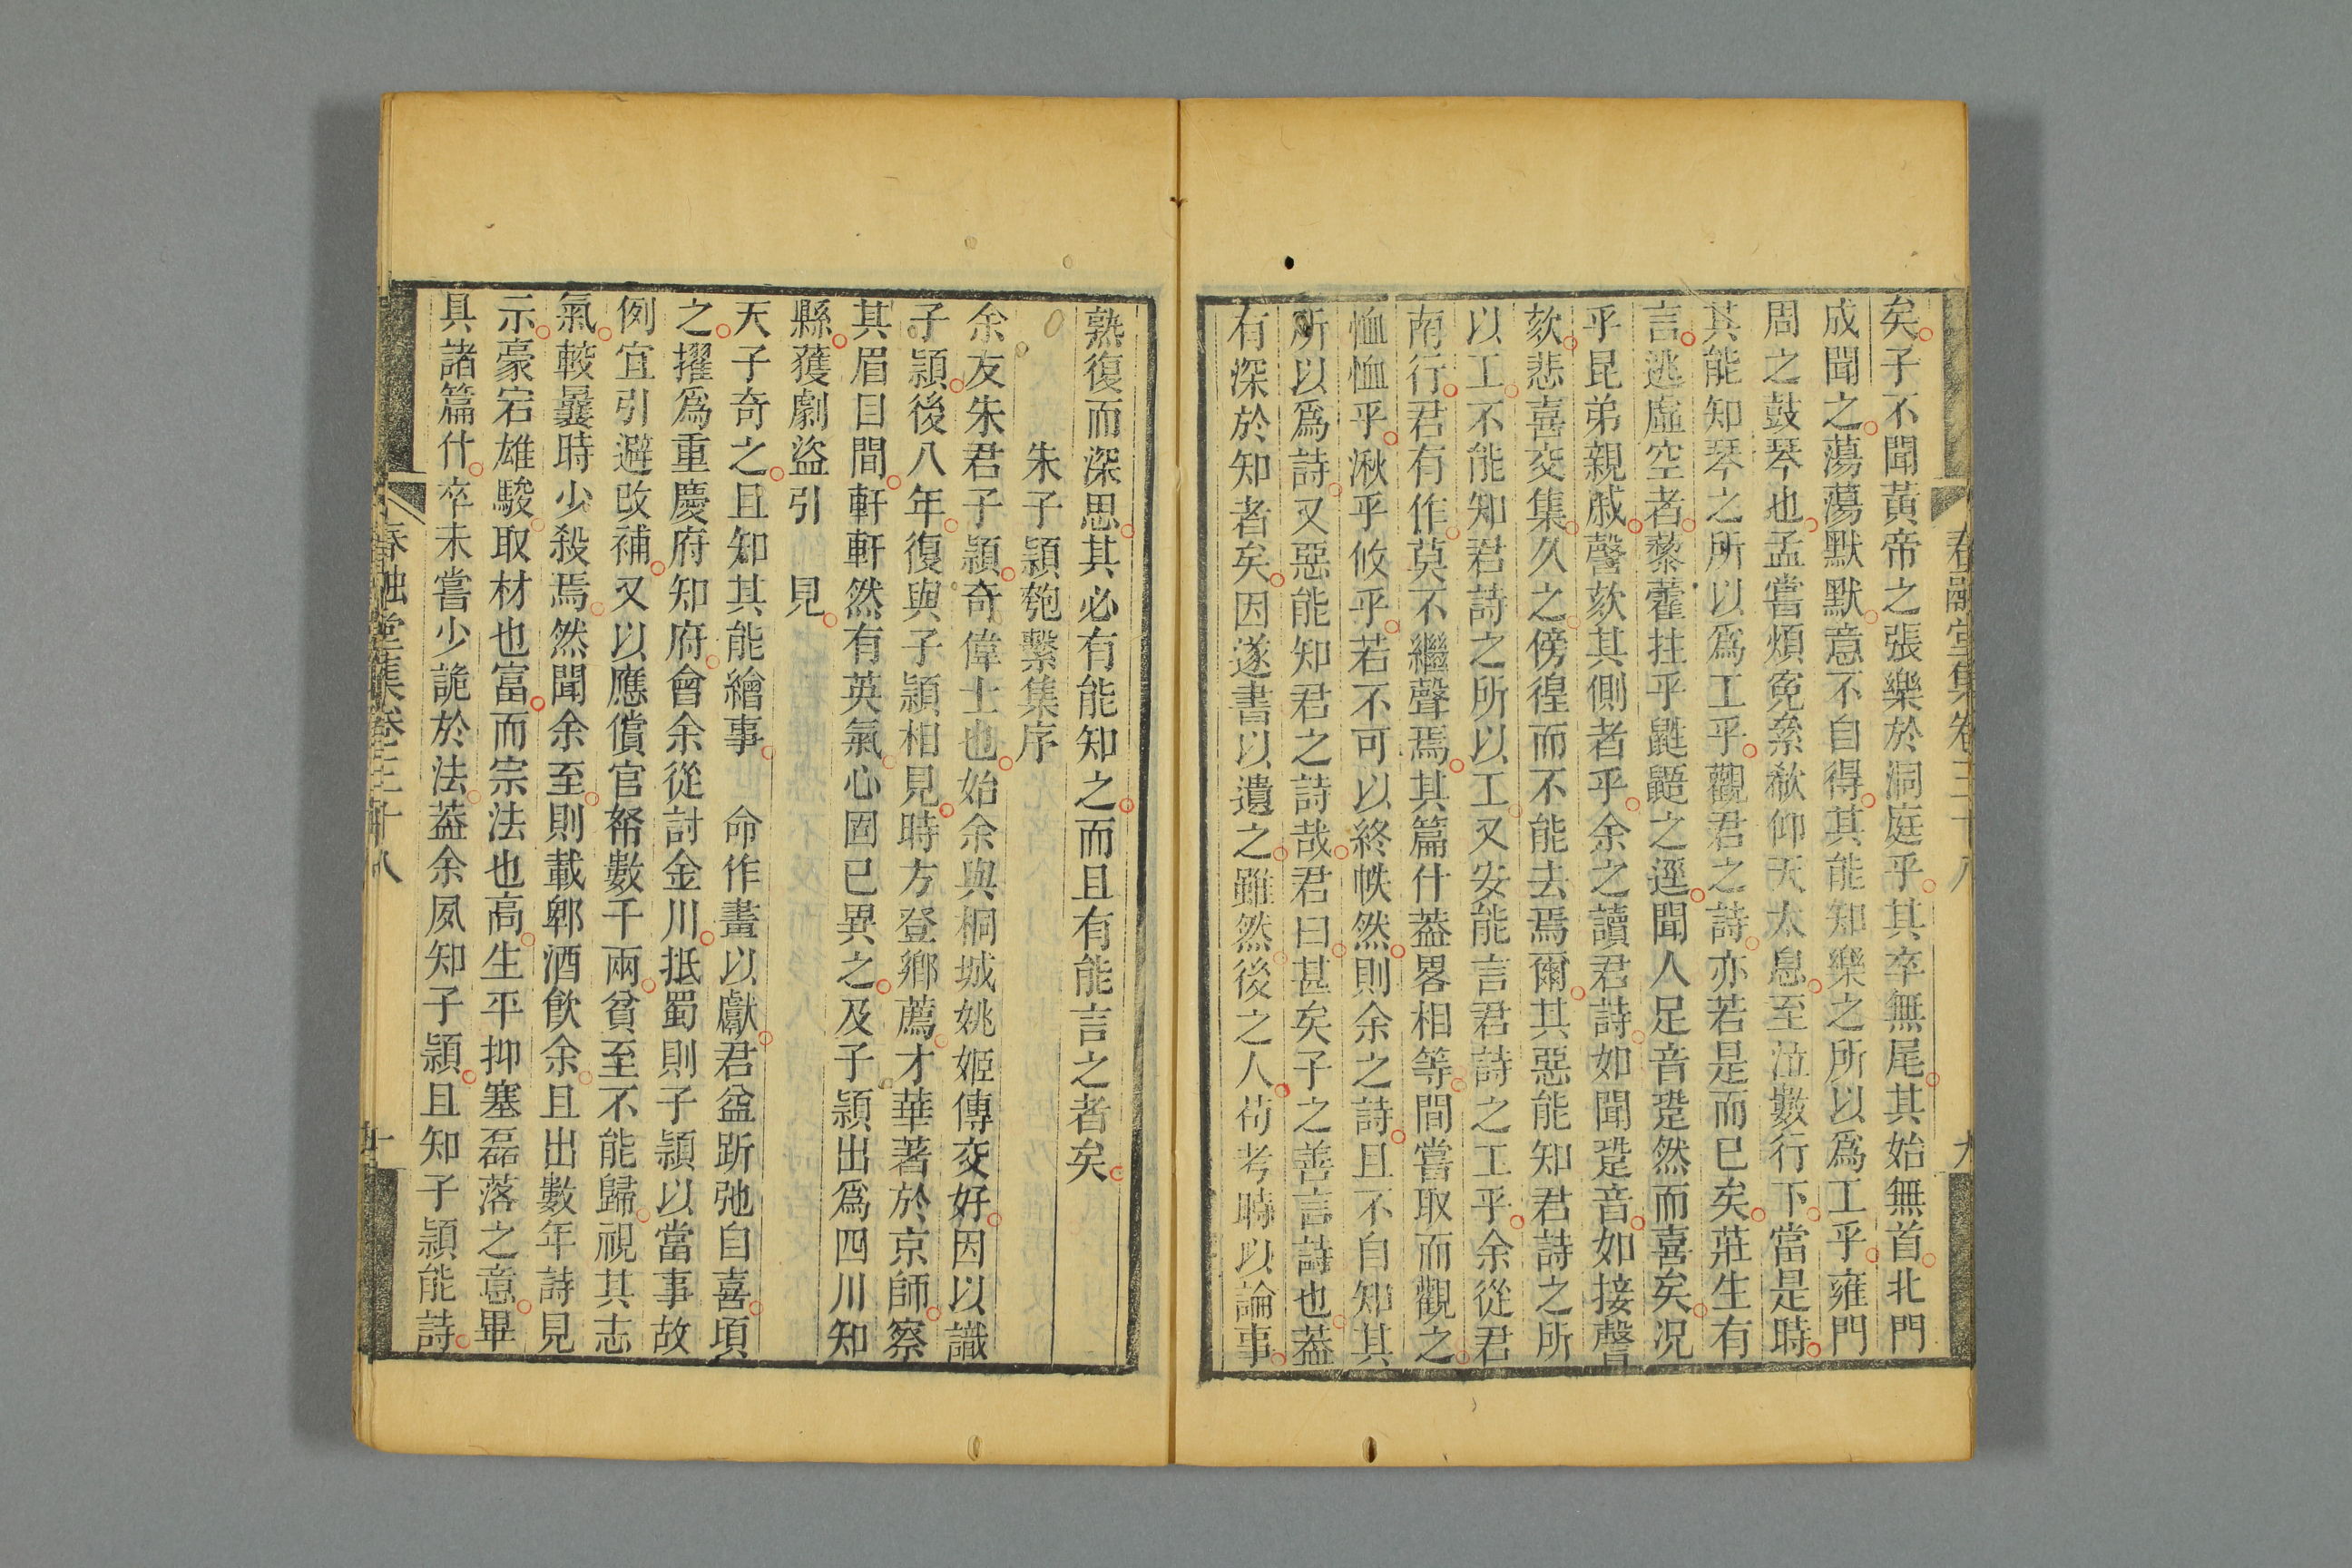 春融堂集卷三十八
九
矣子不聞黃帝之張樂於洞庭乎其卒無尾其始無首北門
成聞之蕩蕩默默意不自得其能知樂之所以爲工乎雍門
周之鼓琴也孟嘗煩寃絫欷仰天太息至泣數行下當是時
其能知琴之所以爲工乎觀君之詩亦若是而已矣莊生有
言逃虛空者藜藋拄乎鼪鼯之逕聞人足音跫然而喜矣况
乎昆弟親戚謦欬其側者乎余之讀君詩如聞跫音如接謦
欬悲喜交集久之傍徨而不能去焉爾其惡能知君詩之所
以工不能知君詩之所以工又安能言君詩之工乎余從君
南行君有作莫不繼聲焉其篇什葢畧相等間嘗取而觀之
恤恤乎湫乎攸乎若不可以終帙然則余之詩且不自知其
所以爲詩又惡能知君之詩哉君曰甚矣子之善言詩也葢
有深於知者矣因遂書以遺之雖然後之人苟考時以論事
熟復而深思其必有能知之而且有能言之者矣
朱子頴匏繫集序
余友朱君子頴奇偉士也始余與桐城姚姬傳交好因以識
子頴後八年復與子頴相見時方登鄉薦才華著於京師察
其眉目間軒軒然有英氣心固已異之及子頴出爲四川知
縣獲劇盜引　見
天子奇之且知其能繪事　命作畫以獻君益跅弛自喜頃
之擢爲重慶府知府會余從討金川抵蜀則子頴以當事故
例宜引避改補又以應償官帑數千兩貧至不能歸視其志
氣較曩時少殺焉然聞余至則載郫酒飲余且出數年詩見
示豪宕雄駿取材也富而宗法也高生平抑塞磊落之意畢
具諸篇什卒未嘗少詭於法葢余夙知子頴且知子頴能詩
春融堂集卷三十八
十